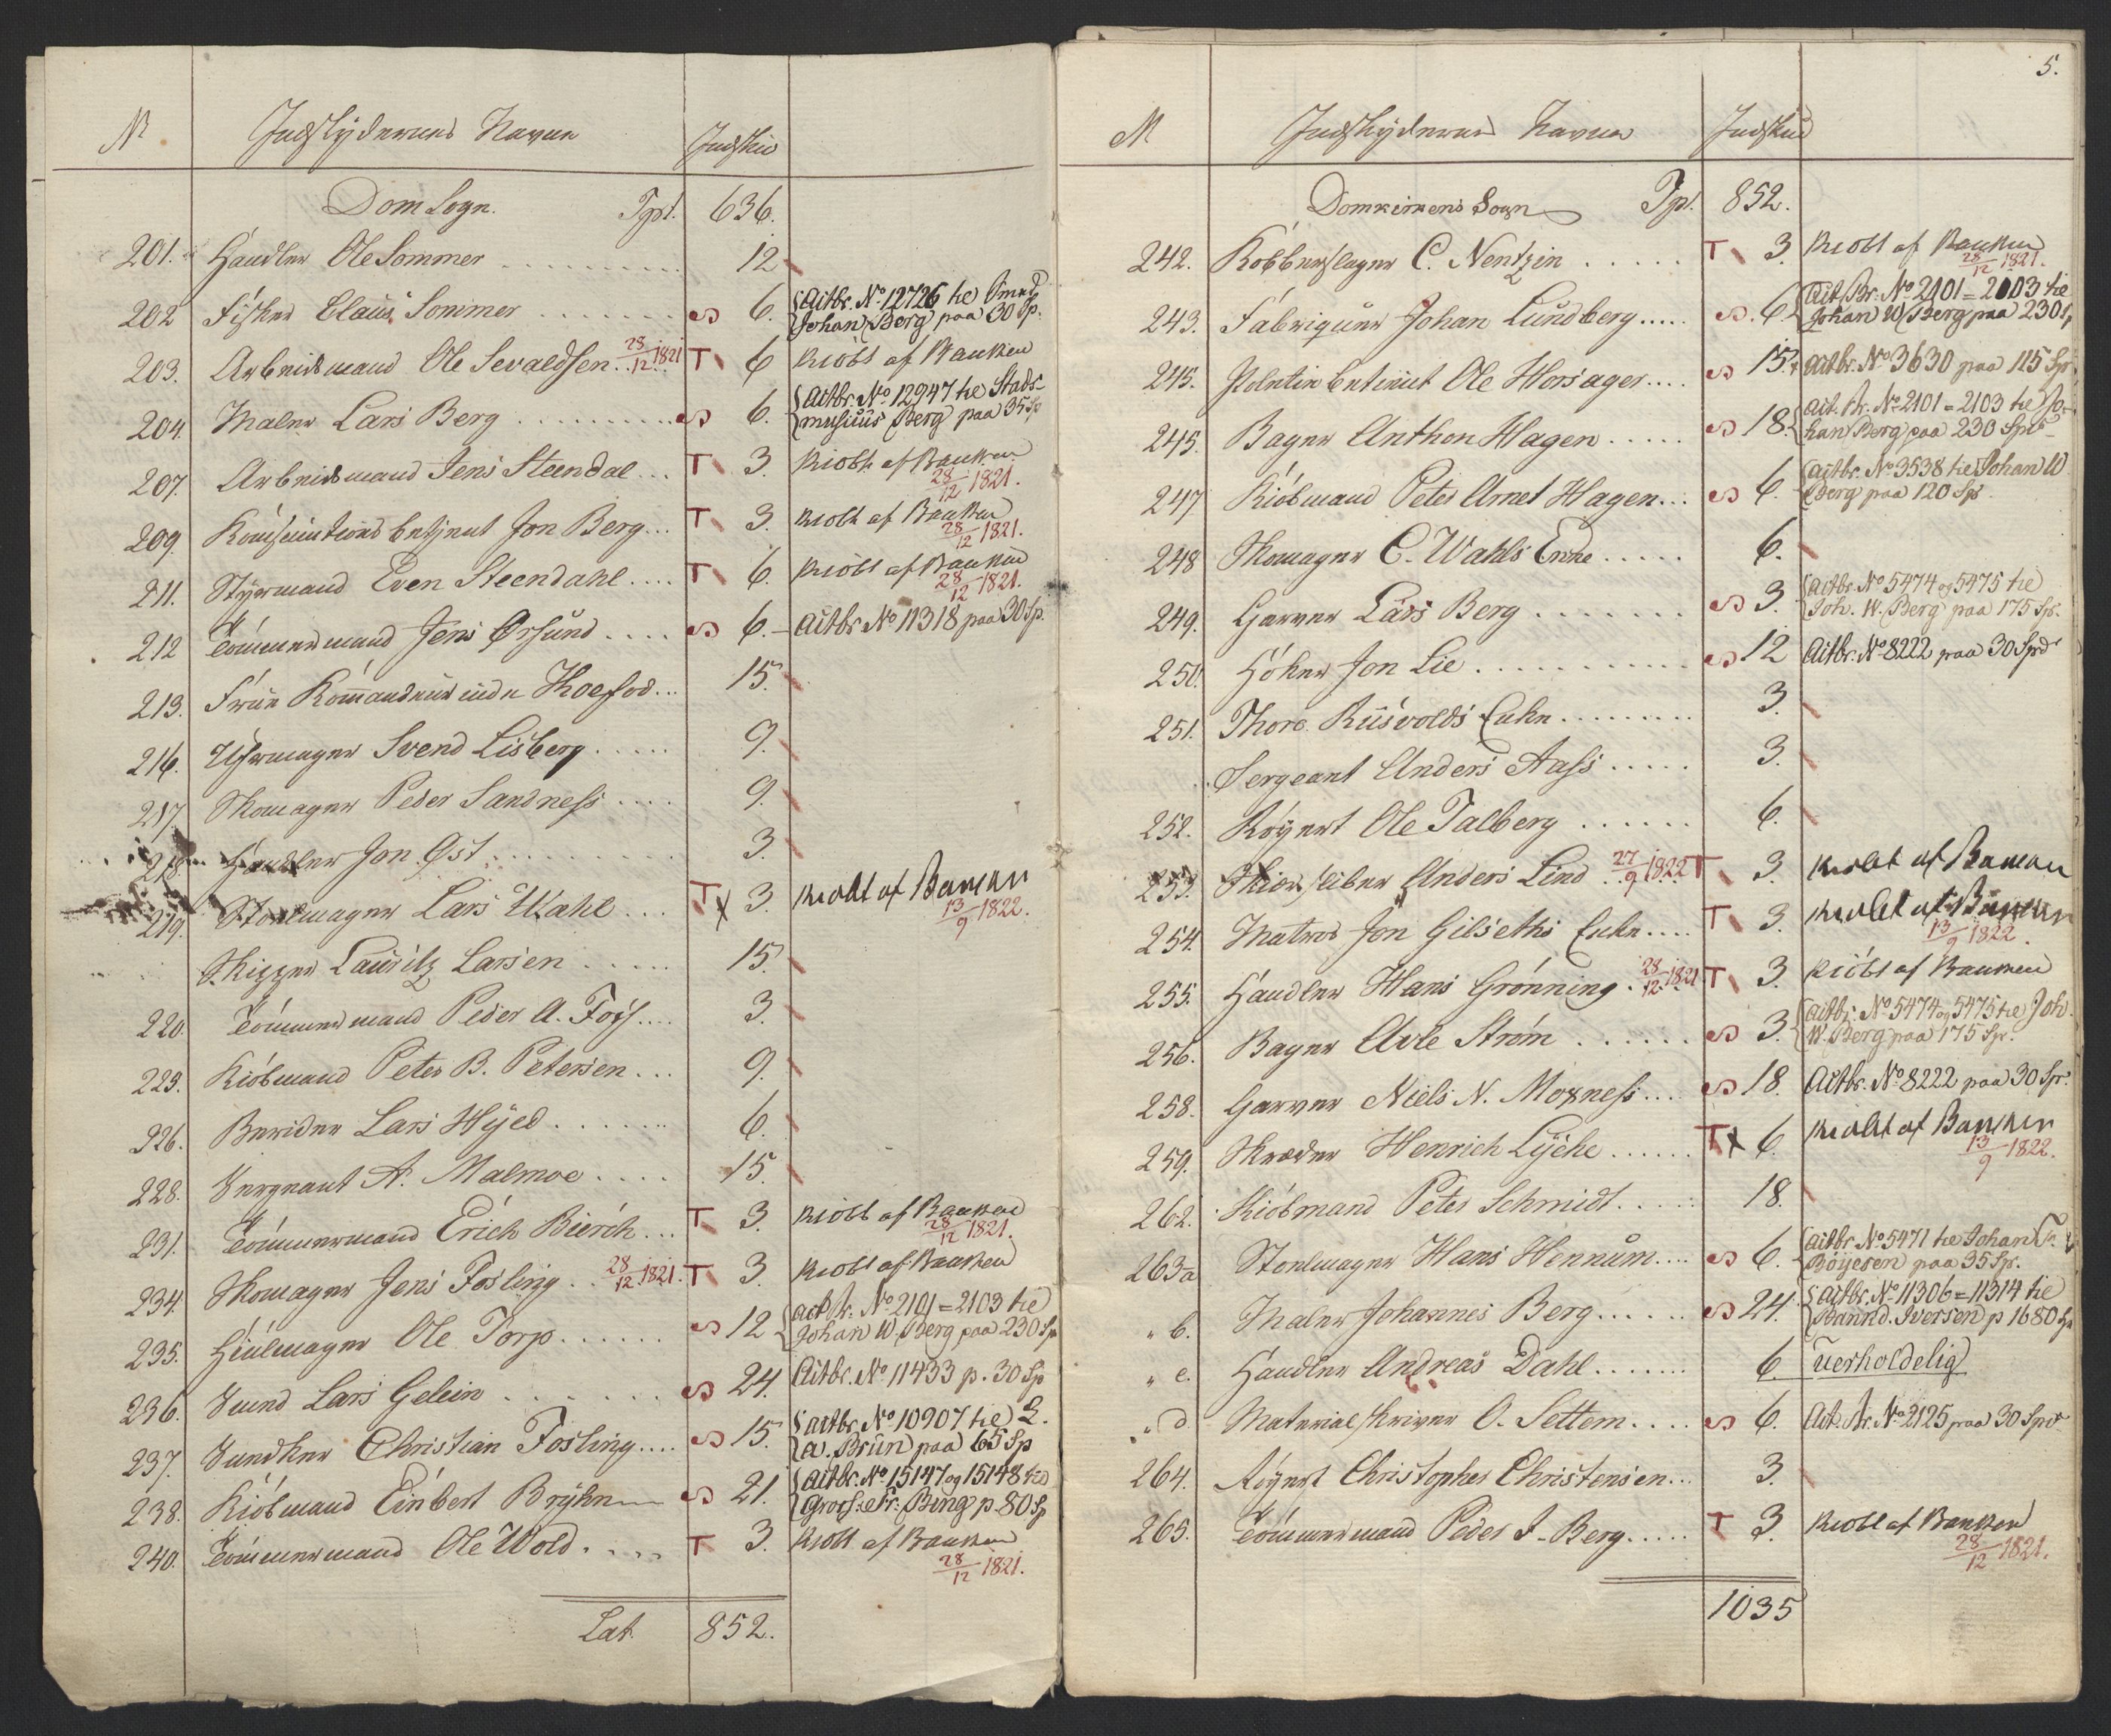 No Indskyderens Navn Indskud
Dom Sogn. Tpt. 636.
201. Handler Ole Sommer 12
202 Fisker Claus Sommer s 6. Actbr. No 12726 til Smed
Johan Berg paa 30 Sp.
203. Arbeidsmand Ole Sevaldsen 28/12 1821 T 6 kiöbt af Banken
204. Maler Lars Berg s 6. Actbr. No 12947 til Stads-
musicus Berg paa 35 Sp
207. Arbeidsmand Jens Steendal T 3. kiöbt af Banken
28/12 1821.
209. Consumtions betjent Jon Berg T 3. kiöbt af Banken
28/12 1821.
211. Styrmand Even Steendahl T 6. kiöbt af Banken
28/12 1821.
212 Tömmermand Jens Ørsund s 6. Actbr No 11318 paa 30 Sp.
213. Frue Kommandeurinde Thoefod 15.
216. Uhrmager Svend Lisberg 9.
217. Skomager Peder Sandness 9.
218. Handler Jon Øst 3.
219. Stoelmager Lars Wahl T x 3. kiöbt af Banken
13/9 1822.
Skipper Lauritz Larsen 15.
220. Tömmermand Peder A. Foss 3.
223. Kiöbmand Peter B. Petersen 9.
226. Berider Lars Hÿed 6.
228. Sergeant A. Malmoe 15.
231. Tömmermand Erich Bierch T 3. kiöbt af Banken
28/12 1821.
234. Skomager Jens Fosling 28/12 1821. T 3. kiöbt af Banken
235. Hiulmager Ole Torp s 12 act br. No 2101=2103 til
Johan W. Berg paa 230 Sp
236. Svend Lars Gelein s 24. Actbr. No 11433 p. 30 Sp
237. Christian Fosling s 15. actbr. No 10907 til L.
a. Brun paa 65 Sp
238. Kiöbmand Einbert Brÿhn s 21. actbr. No 15147 og 15148 til
Gross. Fr. Bing p. 80 Sp
240. Tömmermand Ole Wold T 3. kiöbt af Banken
28/12 1821.
Lat. 852.
5.
No Indskyderens Navn Indskud
Domkirkens Sogn Tpt. 852.
242. Kobberslager C. Nentzin T 3. kiöbt af Banken
28/12 1821.
243. Fabriqueur Johan Lundberg s. 6. Act Br. No 2101=2103 til
Johan W Berg paa 230 Sp
245. Politie betient Ole Horsager s 15. actbr. No 3630 paa 115 Sp
245. Bager Anthon Hagen s 18. act. br. No 2101=2103 til Jo-
han Berg paa 230 Sp
247 Kiöbmand Peter Arnet Hagen s 6. actbr. No 3538 til Johan W
Berg paa 120 Sp
248 Skomager C. Wahls Enke 6.
249. Garver Lars Berg s 3. actbr. No 5474 og 5475 til
Joh. W. Berg paa 175 Sp.
250. Höker Jon Lie s 12 Actbr. No 8222 paa 30 Spd
251. Thore Rusvolds Enke 3.
Sergeant Anders Aass 3.
252. Röyert Ole Talberg 6.
253. Anders Lind 27/9 1822 T 3. kiöbt af Banken
254. Matros Jon Gilseths Enke T 3. kiöbt af Banken
13/9 1822.
255. Handler Hans Grönning 28/12 1821 T 3. kiöbt af Banken
256. Bager Avle Ström s 3. actbr. No 5474 og 5475 til Joh.
W. Berg paa 175 Sp.
258. Garver Niels N. Moxness s 18. Actbr. No 8222 paa 30 Sp.
259. Skræder Henrich Lÿche T x 6. kiöbt af Banken
13/9 1822.
262. Kiöbmand Peter Schmidt 18.
263a Stoelmager Hans Hennum s 6. actbr. No 5471 til Johan F.
Böyesen paa 35 Sp.
" b. Maler Johannes Berg s 24. actbr. No 11306=11314 til
Iversen p 1680 Sp
" c. Handler Andreas Dahl 6. uerholdelig
" d. Materialskriver O. Settem s 6. Act. br. No 2125 paa 30 Spd
264. Röyert Christopher Christensen 3.
265. Tömmermand Peder J. Berg T 3. kiöbt af Banken
28/12 1821.
1035